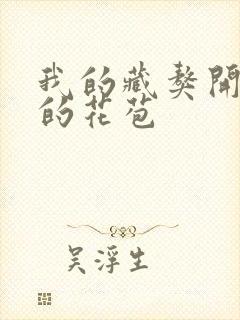 我的藏獒開
的花苞
吴浮生